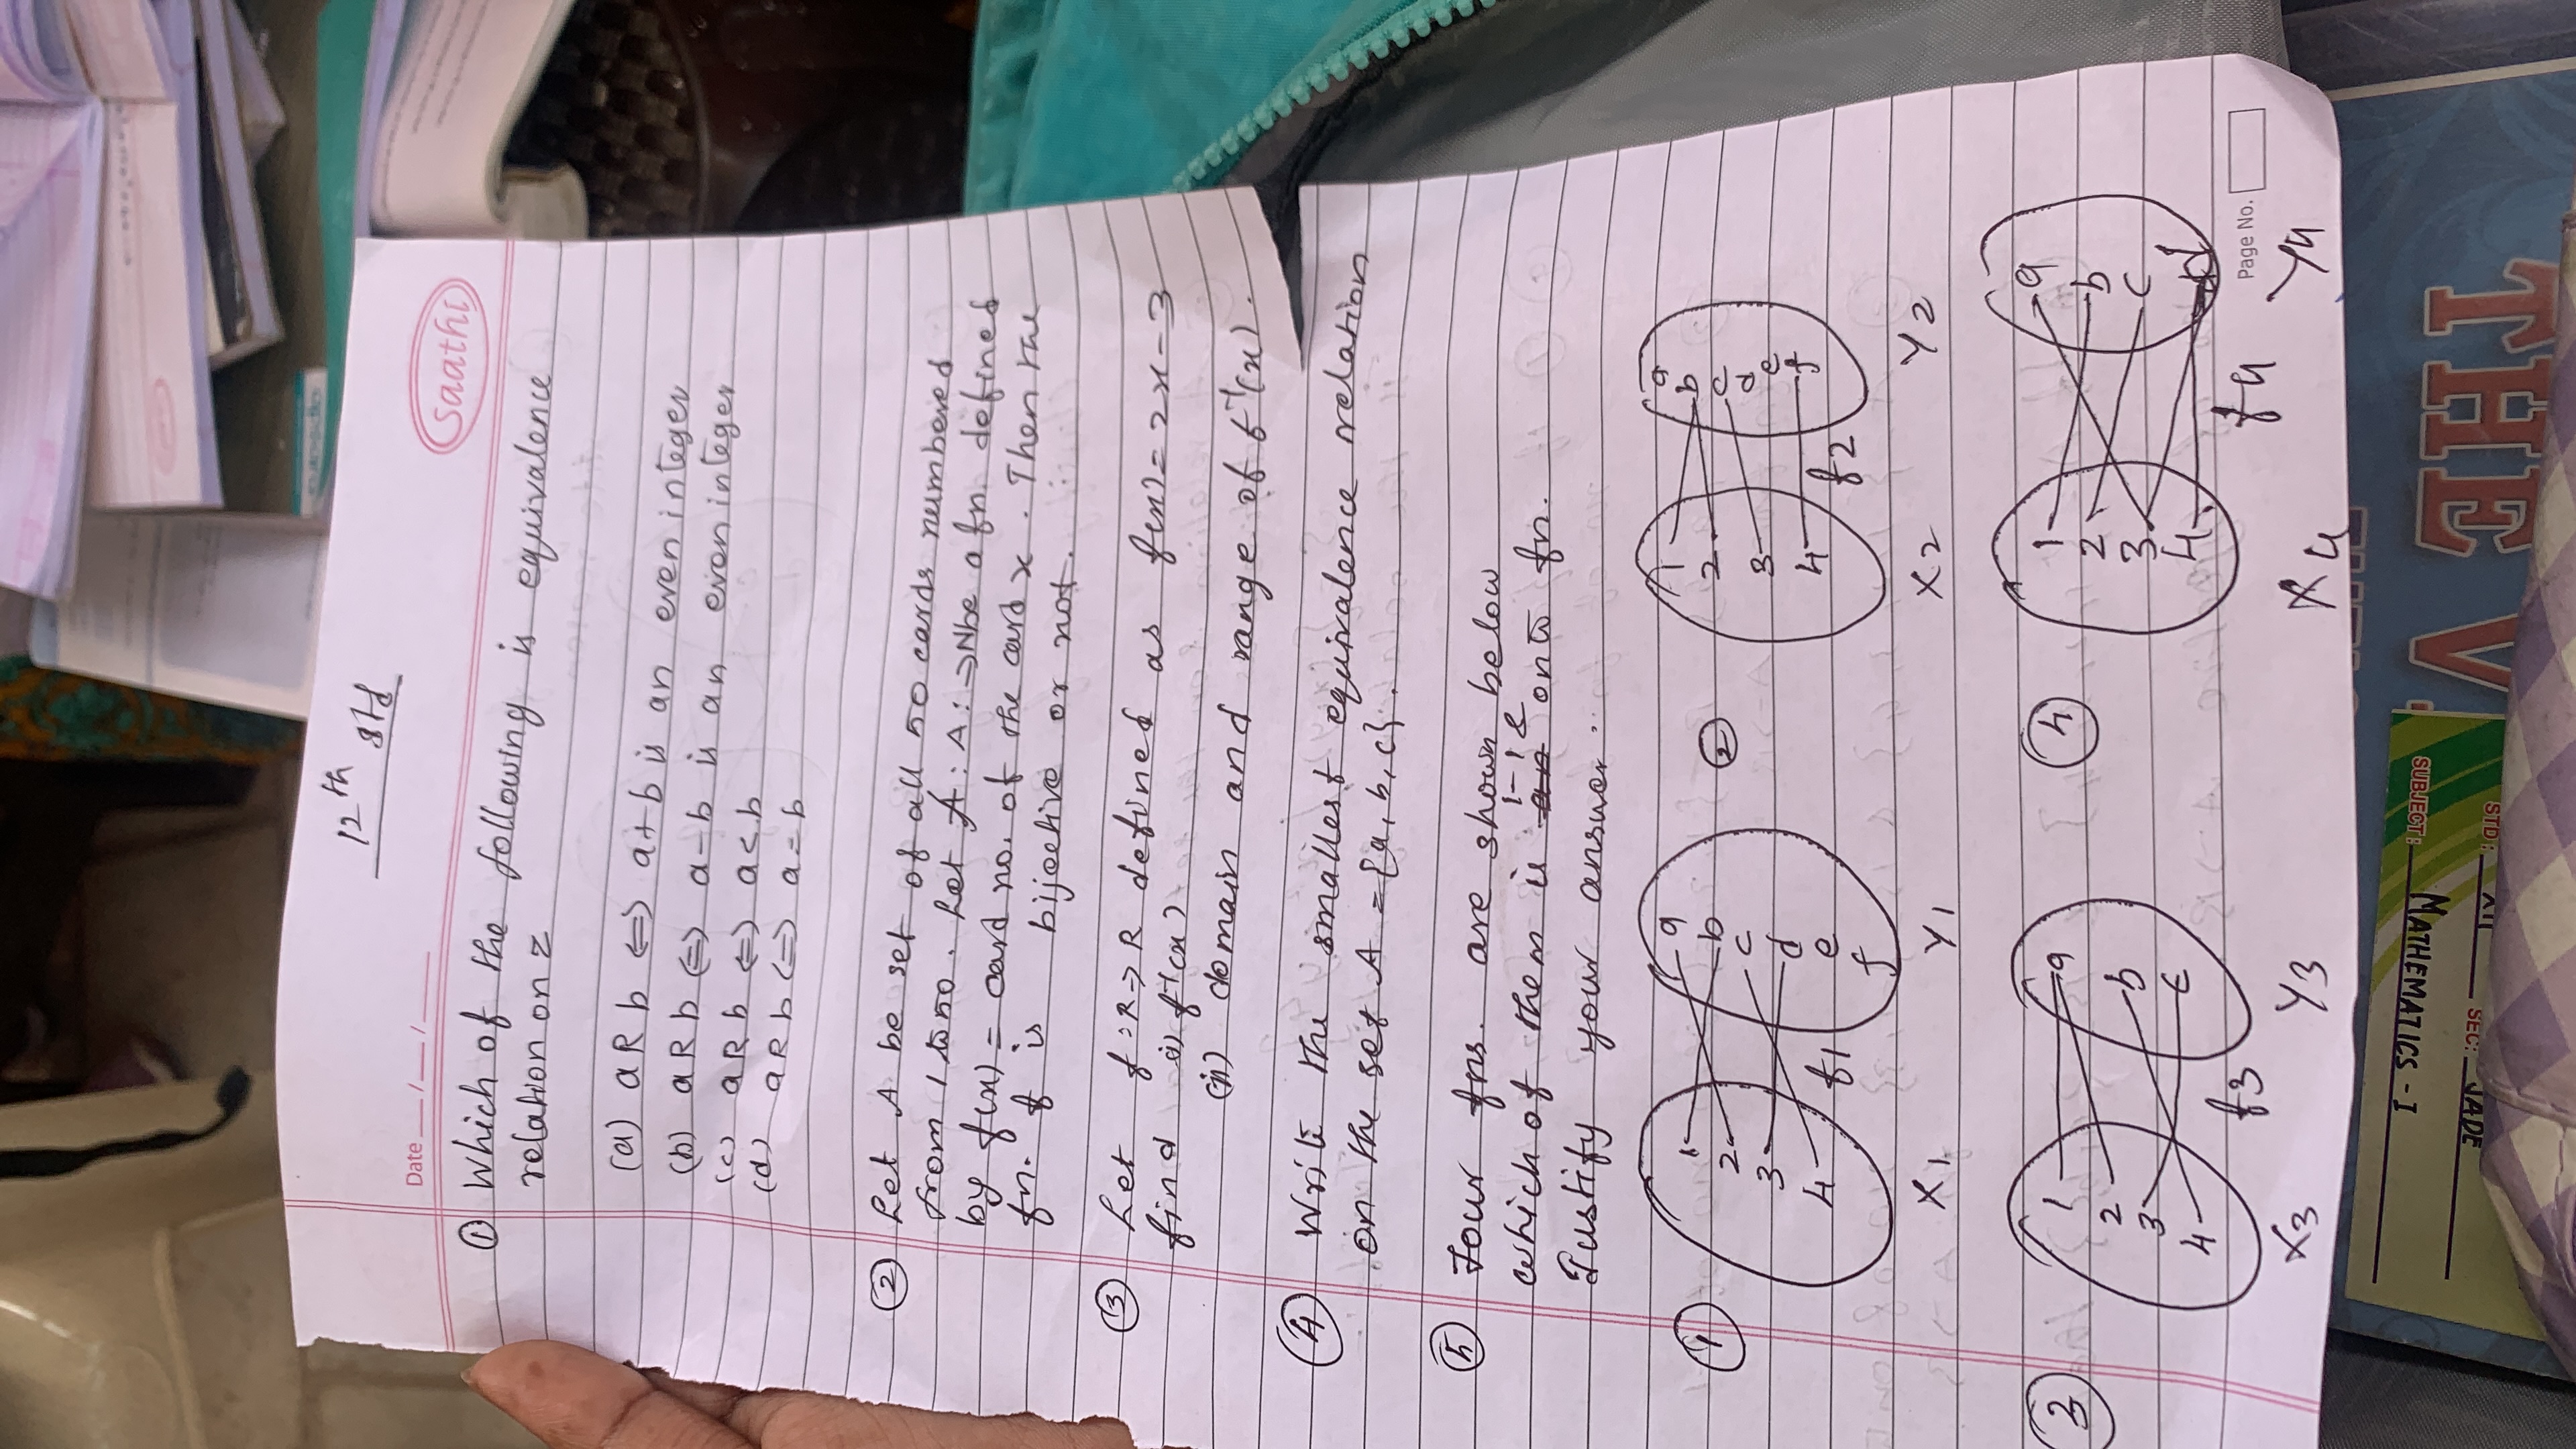 12th std
saathi
Date __/__/__
① Which of the following is equivalence
relation on z
(a) a R b ⇔ a+b is an even integer
(b) a R b ⇔ a-b is an even integer
(c) a R b ⇔ a<b
(d) a R b ⇔ a=b
② Let A be set of all 50 cards numbered
from 1 to 50. Let f: A:→N be a fn defined
by f(x) = card no. of the card x. Then the
fn. f is bijective or not.
③ Let f:R→R defined as f(x)=2x-3
find i) f⁻¹(x)
(ii) domain and range of f⁻¹(x).
④ Write the smallest equivalence relation
on the set A = {a, b, c}.
⑤ Four fns. are shown below
which of them is 1-1 & onto fn.
Justify your answer.
① 1 2 3 4 a b c d e f
X1 f1 Y1
② 1 2 3 4 a b c d e f
X2 f2 Y2
③ 1 2 3 4 a b c
X3 f3 Y3
④ 1 2 3 4 a b c d
X4 f4 Y4
Page No.
THE V
SUBJECT: MATHEMATICS - I
STD: XII SEC: JADE